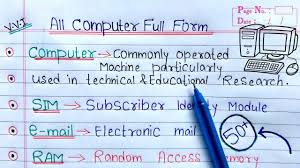 YNJ All Computer Full Form
Page No.:
Date :
Computer → Commonly Operated
Machine particularly
used in technical & Educational Research.
SIM → Subscriber Identity Module
e-mail → Electronic mail
RAM → Random Access Memory
50+